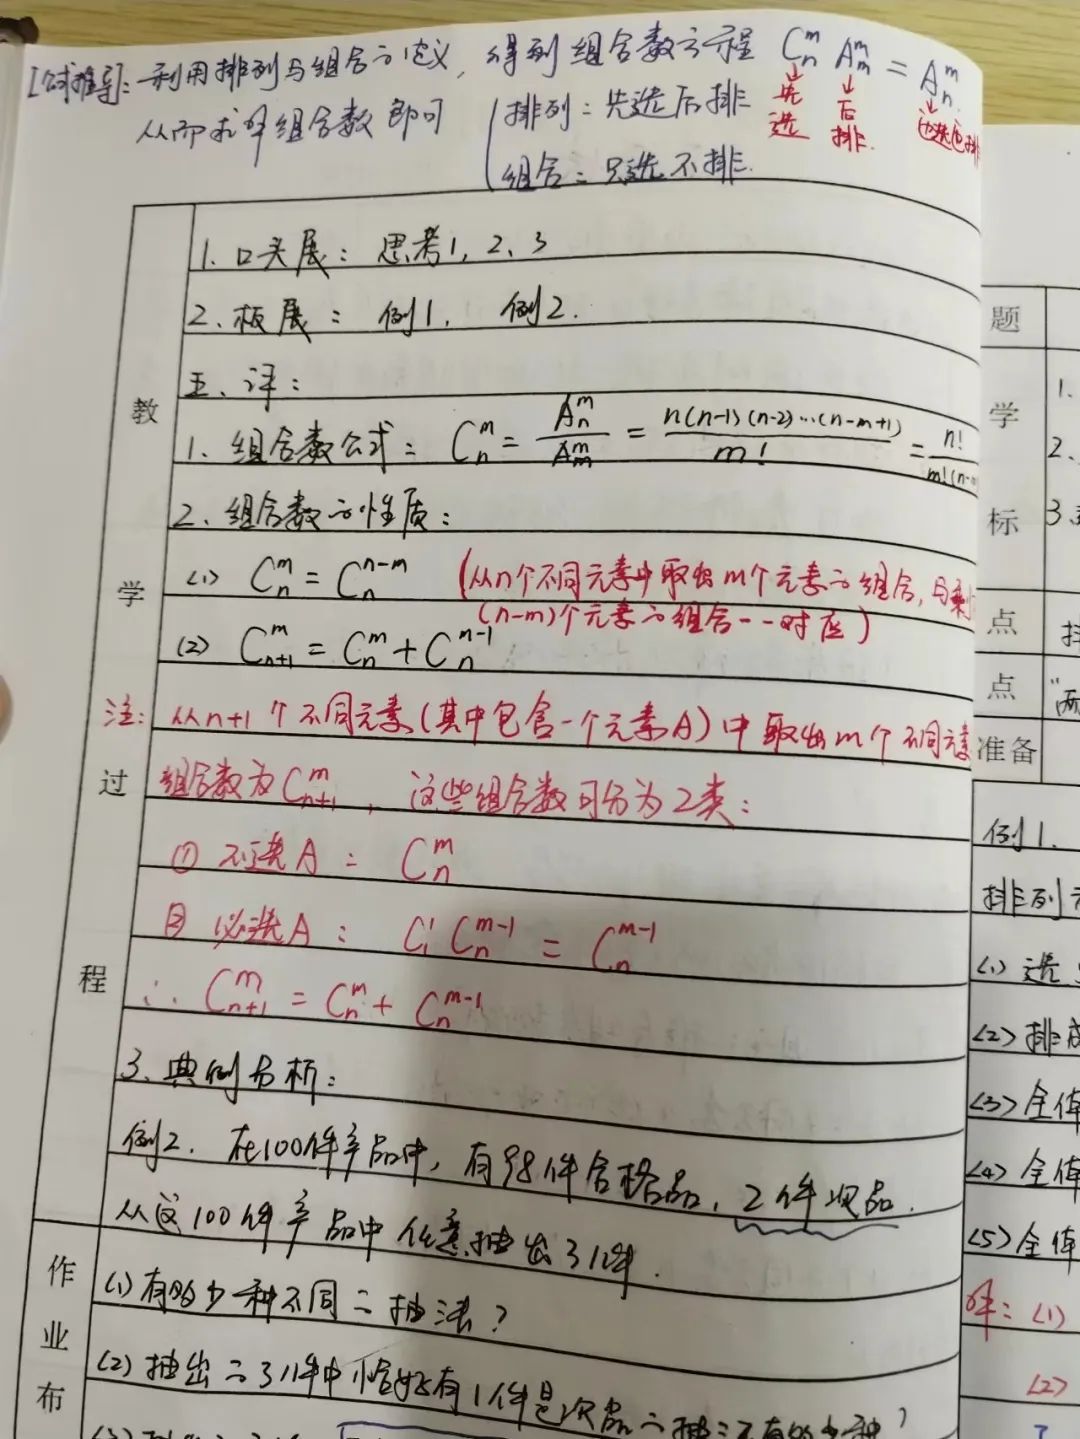 [公式推导]:利用排列与组合的定义,得到组合数方程 C_n^m A_m^m = A_n^m
↓先选 ↓后排 ↓先选后排
从而求解组合数即可
排列:先选后排
组合:只选不排.
1.口头展:思考1,2、3
2.板展:例1. 例2.
五、评:
1.组合数公式:C_n^m = A_n^m/A_m^m = n(n-1)(n-2)…(n-m+1)/m! = n!/m!(n-
2.组合数的性质:
<1> C_n^m = C_n^{n-m} (从n个不同元素中取出m个元素的组合,与剩
(n-m)个元素的组合一一对应)
<2> C_{n+1}^m = C_n^m + C_n^{n-1}
注:从n+1个不同元素(其中包含一个元素A)中取出m个不同元素
组合数为C_{n+1}^m,这些组合数可分为2类:
① 不选A: C_n^m
② 必选A: C_1^1 C_n^{m-1} = C_n^{m-1}
∴ C_{n+1}^m = C_n^m + C_n^{m-1}
3、典例分析:
例2.在100件产品中,有98件合格品,2件次品.
从这100件产品中任意抽出3件.
(1)有多少种不同的抽法?
(2)抽出的3件中恰好有1件是次品的抽法有多少种?
教
学
过
程
作
业
布
题
学
标
点
点
准备
1.
2.
3.
"两
例1.
排列
<1>选
<2>排成
<3>全体
<4>全体
<5>全体
解:<1>
<2>